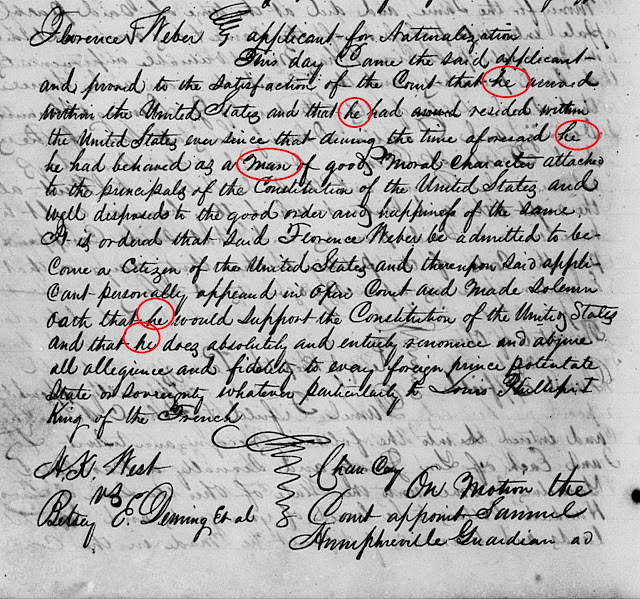 Florence Weber } applicant for Naturalization
This day Came the said applicant
and proved to the satisfaction of the Court that he arrived
within the United States and that he had resided within
the United States ever since that during the time aforesaid he
he had behaved as a man of good Moral Character attached
to the principals of the Constitution of the United States and
well disposed to the good order and happiness of the same
It is ordered that said Florence Weber be admitted to be-
Come a Citizen of the United States and thereupon said appli-
cant personally appeared in open Court and Made Solemn
oath that he would support the Constitution of the United States
and that he does absolutely and entirely renounce and abjure
all allegiance and fidelity to every foreign prince potentate
State or sovereignty whatever particularly to Louis Phillipi 1
King of the French
A. K. West
vs
Betsey E. Deming Et al
Chancey
On Motion the
Court appoint Samuel
Humphreville Guardian ad